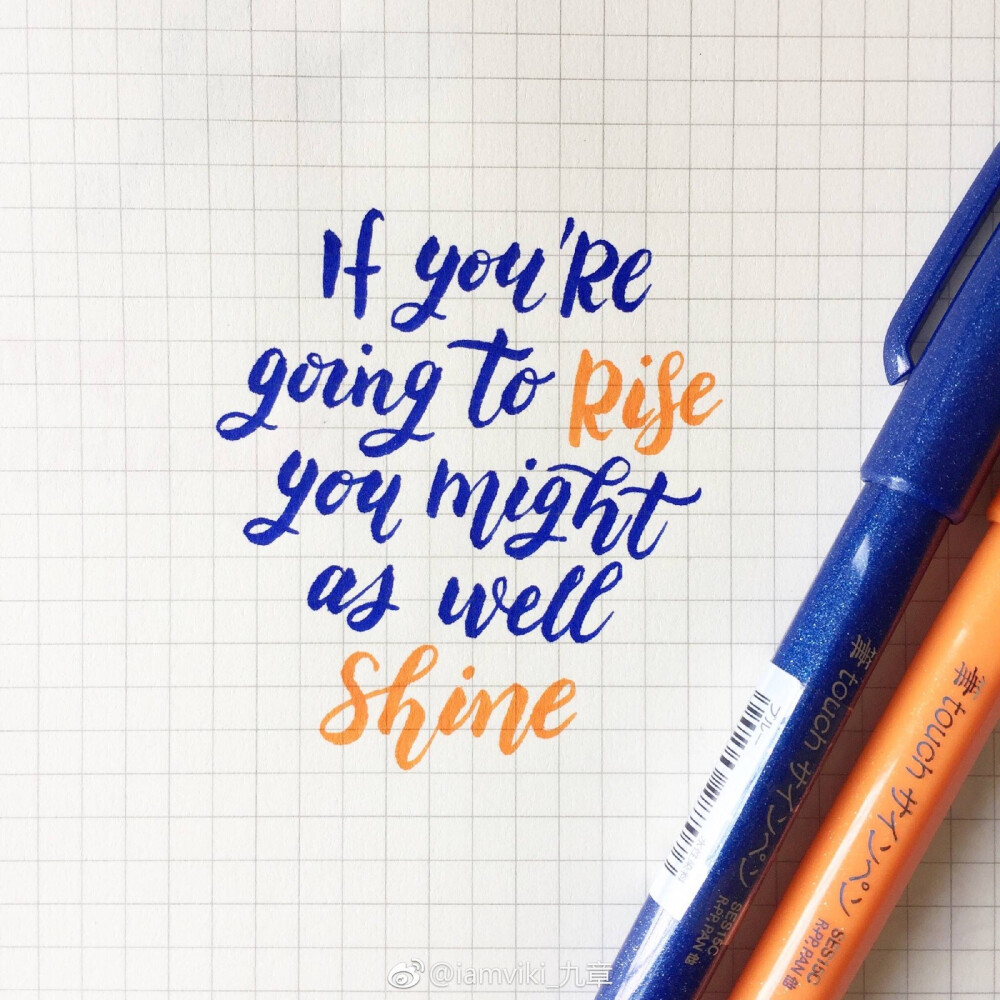 If you're
going to Rise
you might
as well
Shine
筆touch サインペン SES15C
R-PP, PAN
ブルー
筆touch サインペン SES15C
R-PP, PAN
@iamviki_九章